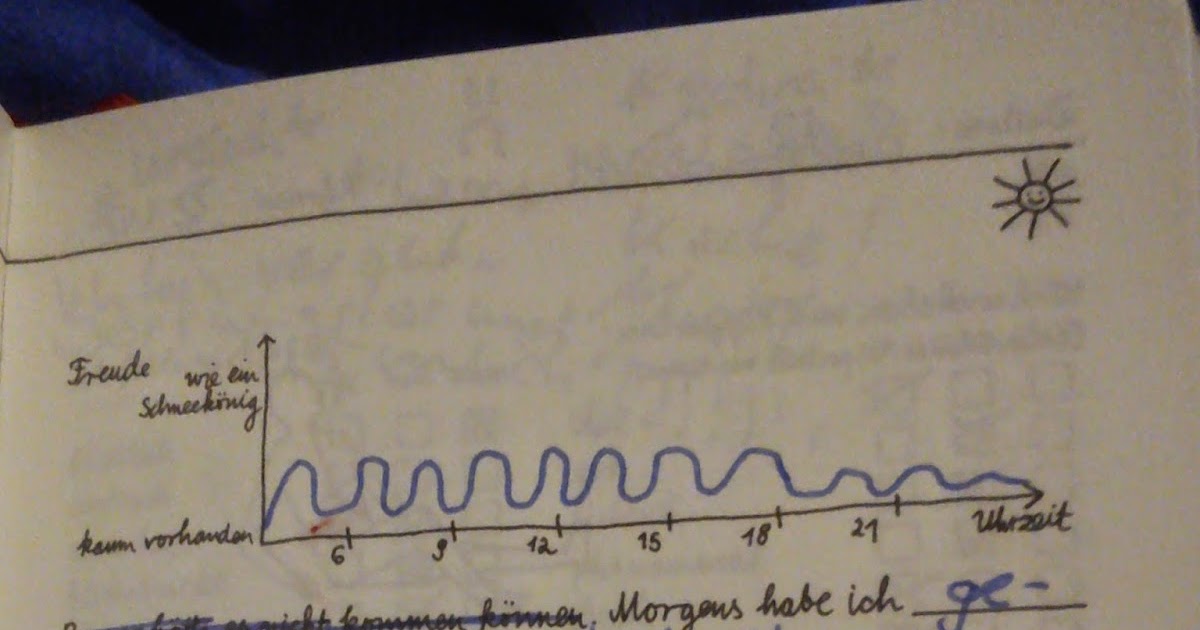 Freude wie ein
Schneekönig
kaum vorhanden
6 9 12 15 18 21 Uhrzeit
es nicht kommen können. Morgens habe ich ge-